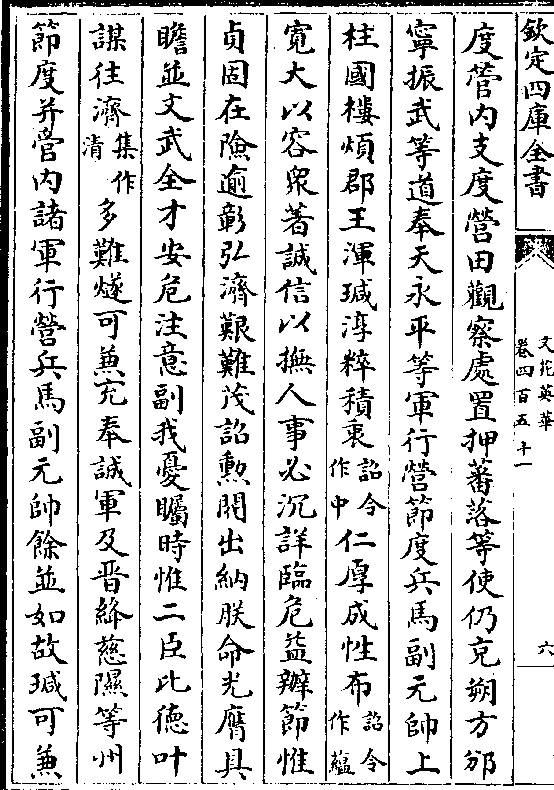 欽定四庫全書
文苑英華
卷四百五十一
六
度營内支度營田觀察處置押蕃落等使仍充朔方邠
寧振武等道奉天永平等軍行營節度兵馬副元帥上
柱國樓煩郡王渾瑊淳粹積衷詔令作中仁厚成性布詔令作蘊
寛大以容衆著誠信以撫人事必沉詳臨危益辦節惟
貞固在險逾彰弘濟艱難茂詔勲閥出納朕命光膺具
瞻並文武全才安危注意副我憂矚時惟二臣比德叶
謀往濟集作清多難燧可兼充奉誠軍及晋絳慈隰等州
節度并管内諸軍行營兵馬副元帥餘並如故瑊可兼